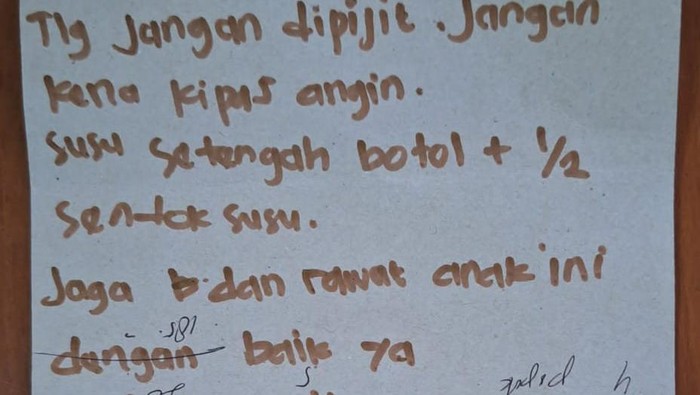 Tlg Jangan dipijit. Jangan
kena kipas angin.
susu setengah botol + 1/2
sentok susu.
Jaga dan rawat anak ini
dengan baik ya